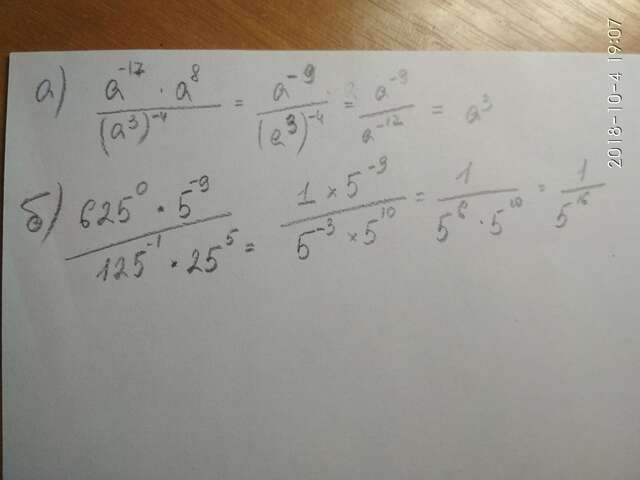 а) (a^-17 · a^8)/((a^3)^-4) = (a^-9)/((a^3)^-4) = (a^-9)/(a^-12) = a^3
б) (625^0 * 5^-9)/(125^-1 * 25^5) = (1 × 5^-9)/(5^-3 × 5^10) = 1/(5^6 · 5^10) = 1/5^16
2018-10-4 19:07